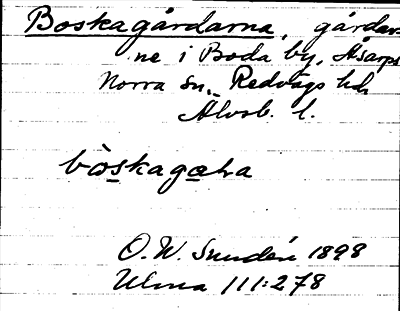 Boskagårdarna, gårdar-
ne i Boda by, Åsarps
Norra sn., Redvägs hd.
Älvsb. l.
bòskagæɫa
O. W. Sundén 1898
Ulma 111:278